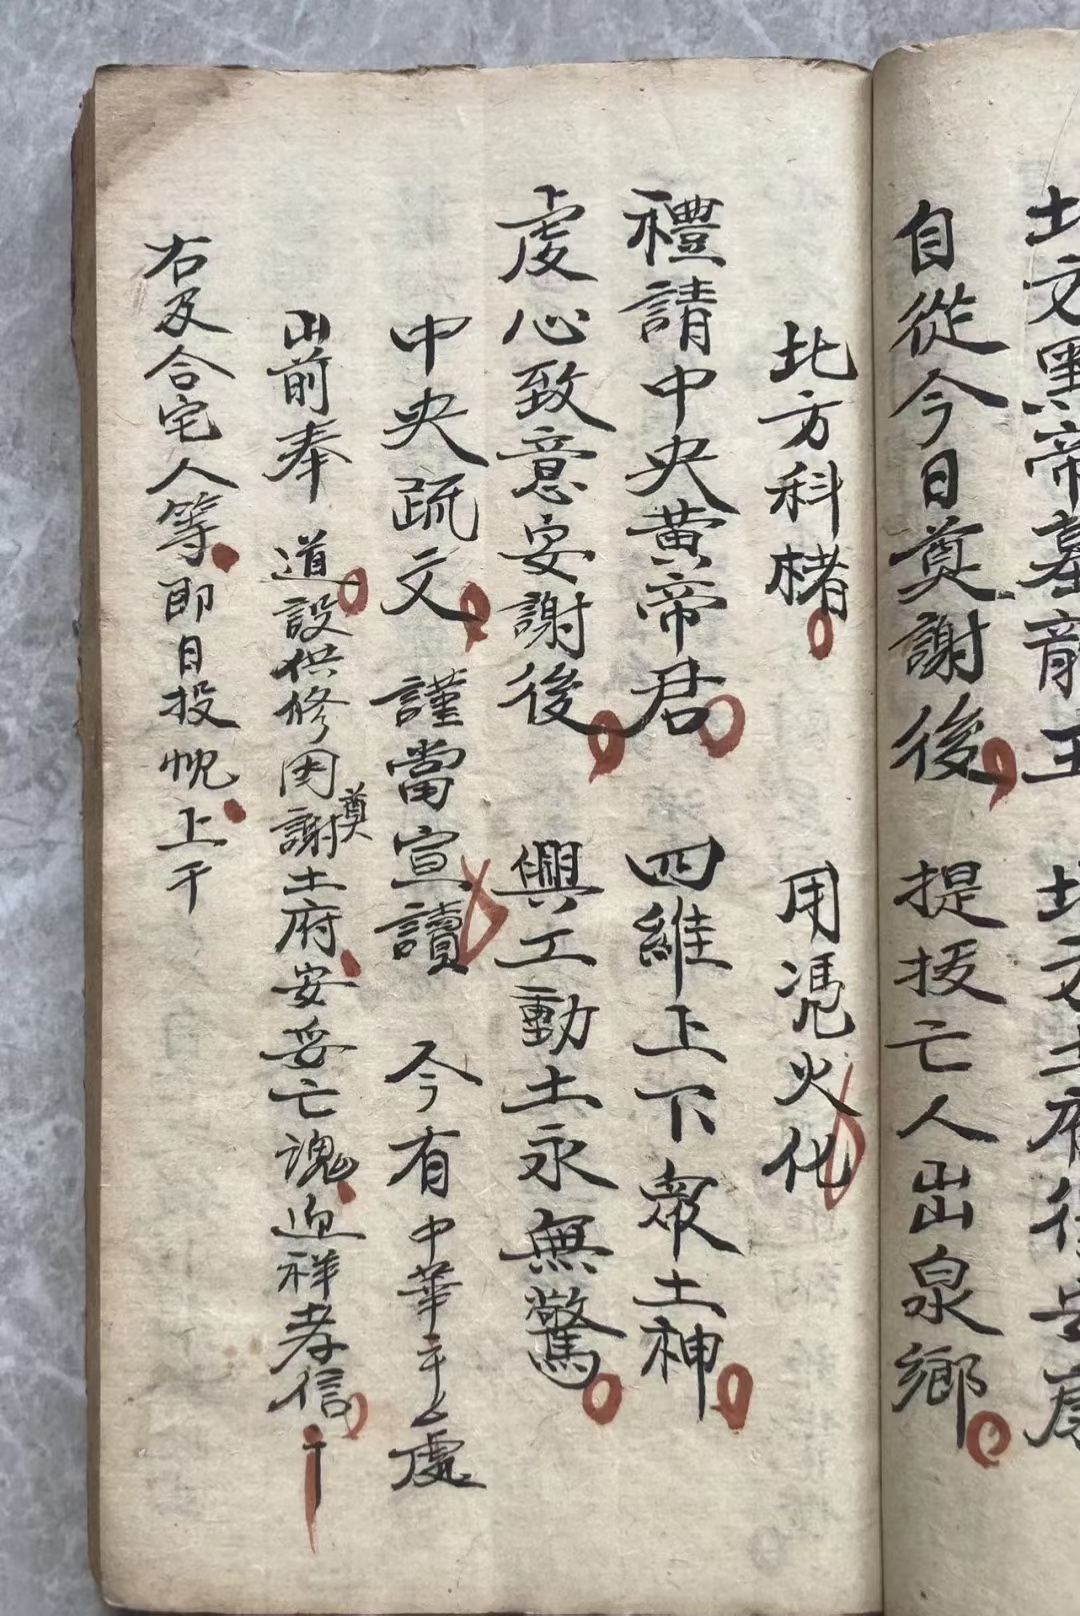 北方黑帝墓龍王 北方土府後安康
自從今日奠謝後 提拔亡人出泉鄉
北方科楮 用凴火化
禮請中央黄帝君 四維上下衆土神
虔心致意安謝後 興工動土永無驚
中央疏文 謹當宣讀 今有中華 處
前奉 道設供修因奠謝土府安妥亡魂迎祥孝信
右及合宅人等即日投忱上干